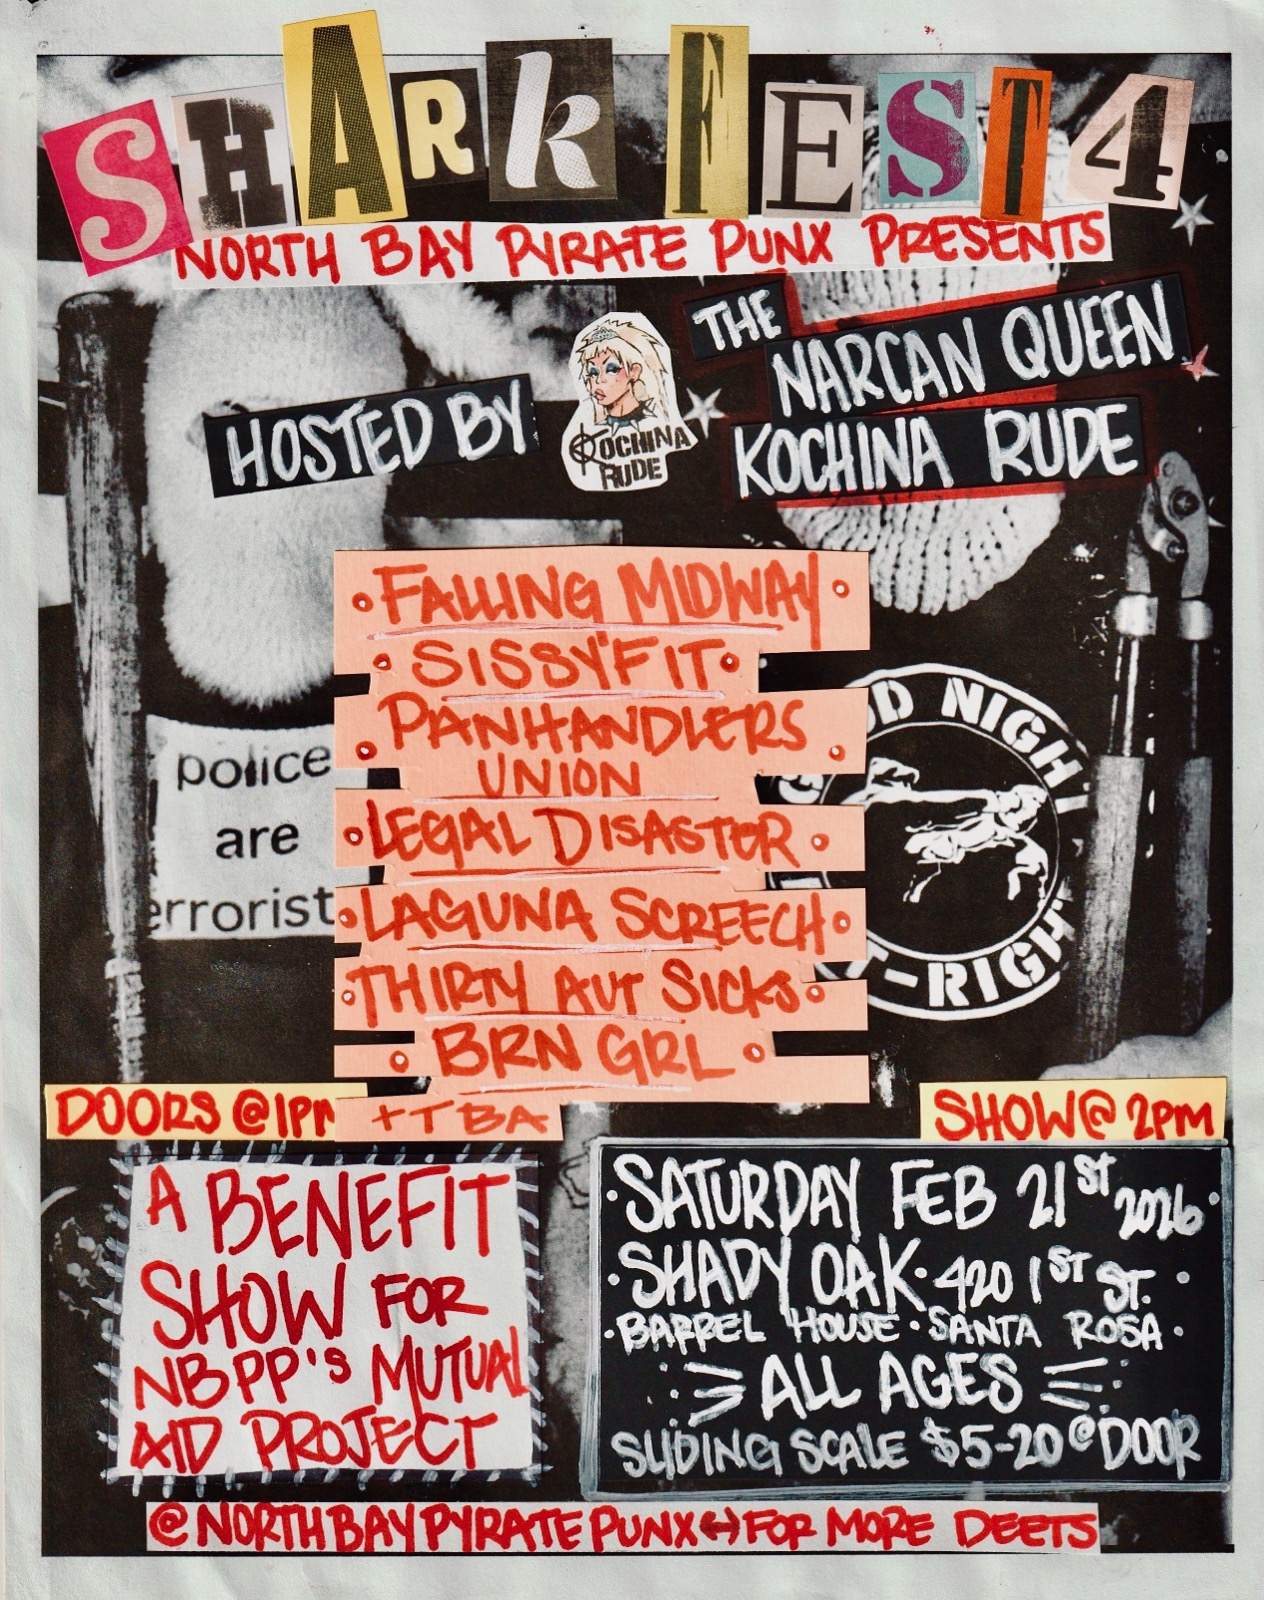 SHARK FEST 4
NORTH BAY PYRATE PUNX PRESENTS
HOSTED BY
KOCHINA
RUDE
THE
NARCAN QUEEN
KOCHINA RUDE
FALLING MIDWAY
SISSYFIT
PANHANDLERS
UNION
LEGAL DISASTER
LAGUNA SCREECH
THIRTY AUT SICKS
BRN GRL
+ TBA
police
are
errorist
OD NIGHT
T-RIGH
DOORS @ 1PM
SHOW @ 2PM
A BENEFIT
SHOW FOR
NBPP'S MUTUAL
AID PROJECT
SATURDAY FEB 21ST 2026
SHADY OAK · 420 1ST ST.
BARREL HOUSE · SANTA ROSA
ALL AGES
SLIDING SCALE $5-20 @ DOOR
@NORTHBAYPYRATEPUNX ↔ FOR MORE DEETS